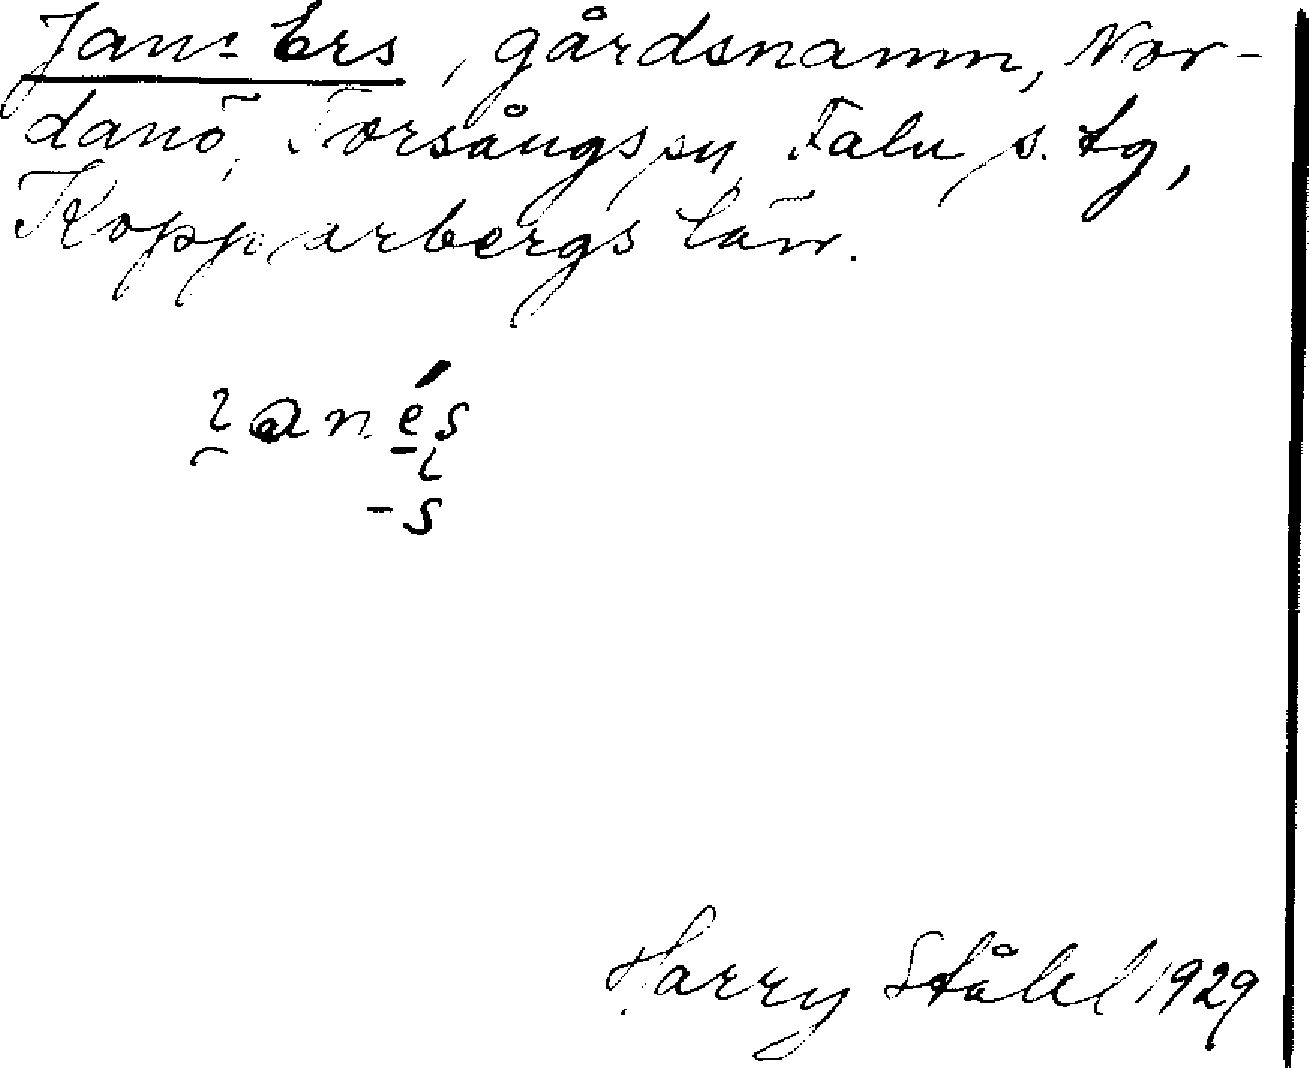 Jans Ers, gårdsnamn, Nor-
danö, Torsångs sn, Falu s. tg,
Kopparbergs län.
-s
Harry Ståhl 1929